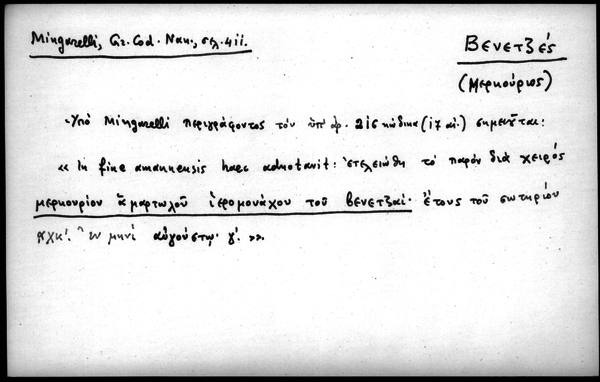 Mingarelli, Gr. Cod. Nan., σελ. 411.
Βενετζές
(Μερκούριος)
Ὑπὸ Mingarelli περιγράφοντος τὸν ὑπ' ἀρ. 216 κώδικα (17 αἰ.) σημειοῦται:
« In fine amanuensis haec adnotavit: ἐτελειώθη τὸ παρὸν διὰ χειρός
μερκουρίου ἁμαρτωλοῦ ἱερομονάχου τοῦ βενετζαί. ἔτους τοῦ σωτηρίου
αχκ'. ἐν μηνὶ αὐγούστῳ. γ'. ».